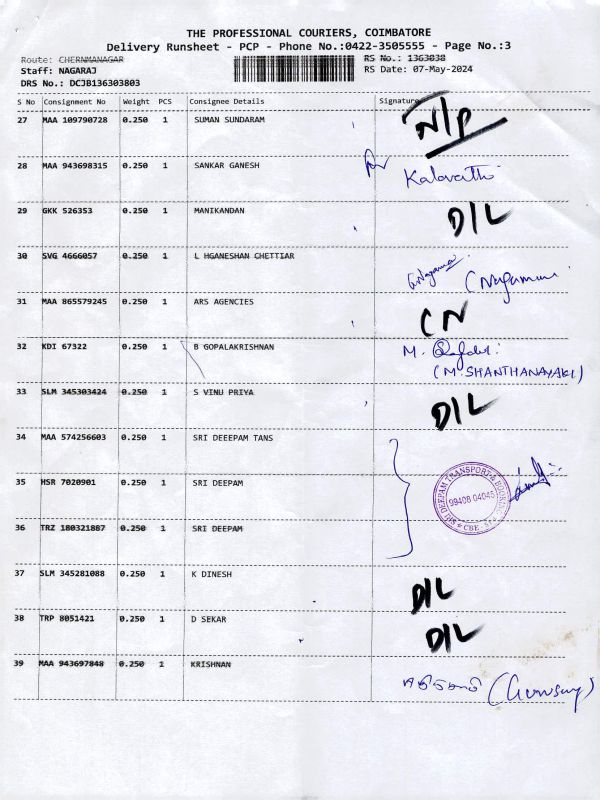 THE PROFESSIONAL COURIERS, COIMBATORE
Delivery Runsheet - PCP - Phone No.:0422-3505555 - Page No.:3
Route: CHERNMANAGAR RS No.: 1363038
Staff: NAGARAJ RS Date: 07-May-2024
DRS No.: DCJB136303803
S No Consignment No Weight PCS Consignee Details Signature
27 MAA 109790728 0.250 1 SUMAN SUNDARAM N/P
28 MAA 943698315 0.250 1 SANKAR GANESH Kalavathi
29 GKK 526353 0.250 1 MANIKANDAN D/L
30 SVG 4666057 0.250 1 L HGANESHAN CHETTIAR
31 MAA 865579245 0.250 1 ARS AGENCIES CN
32 KDI 67322 0.250 1 B GOPALAKRISHNAN M.
(M.SHANTHANAYAKI)
33 SLM 345303424 0.250 1 S VINU PRIYA D/L
34 MAA 574256603 0.250 1 SRI DEEEPAM TANS
35 HSR 7020901 0.250 1 SRI DEEPAM
SRI DEEPAM TRANSPORT & BOOKING
99408 04045
CBE
36 TRZ 180321887 0.250 1 SRI DEEPAM
37 SLM 345281088 0.250 1 K DINESH D/L
38 TRP 8051421 0.250 1 D SEKAR D/L
39 MAA 943697848 0.250 1 KRISHNAN